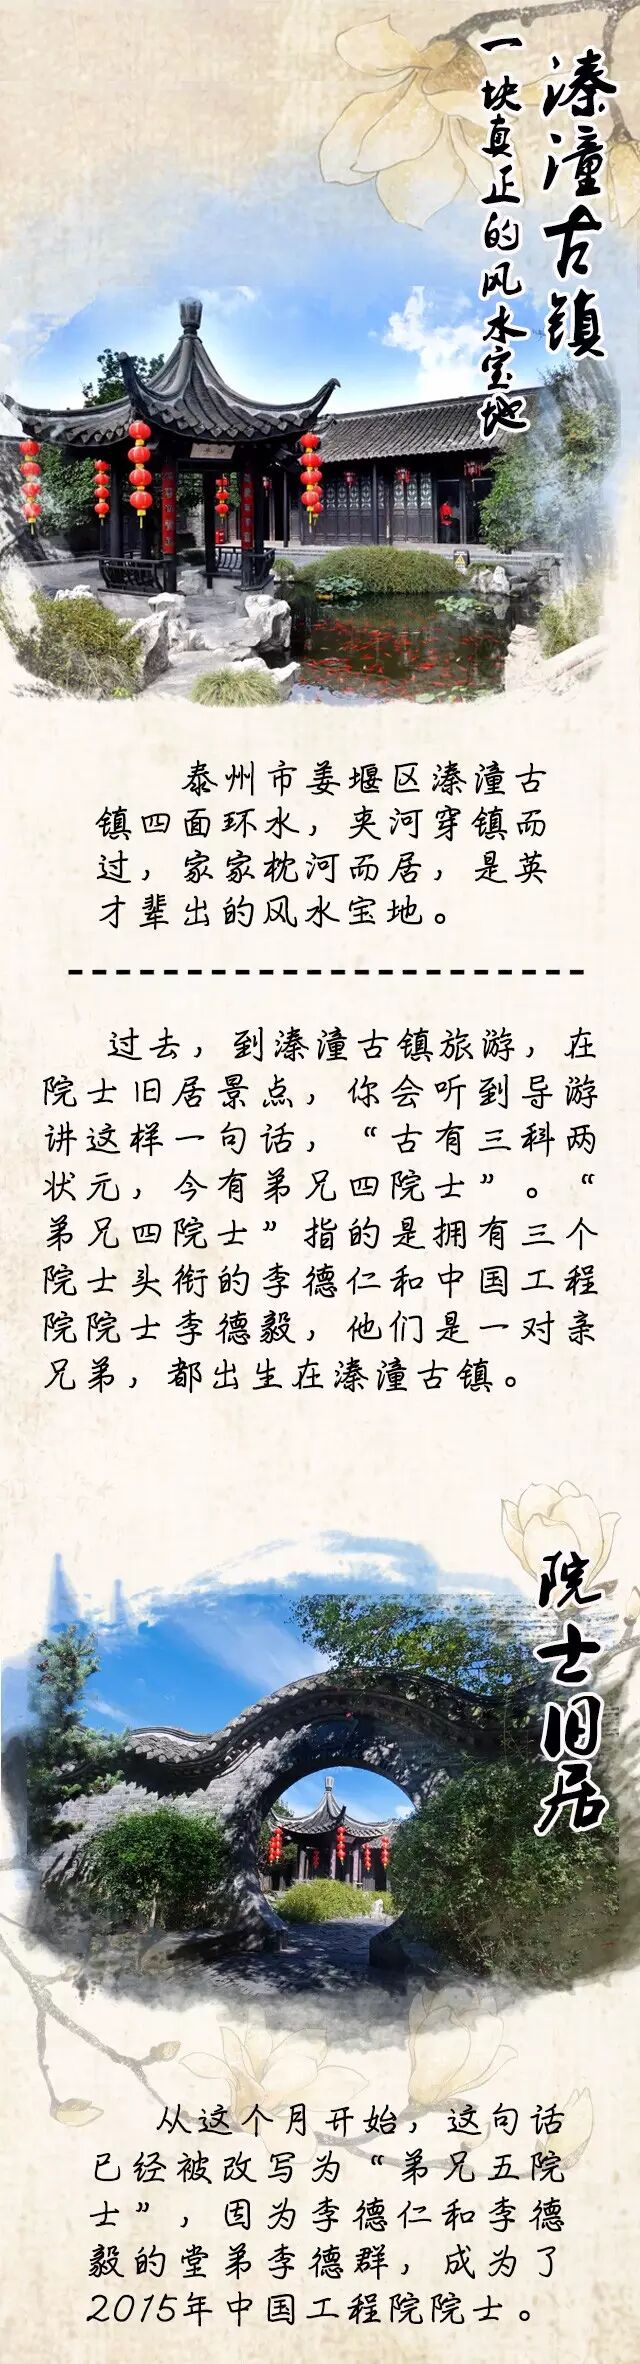 溱潼古镇
一块真正的风水宝地
泰州市姜堰区溱潼古
镇四面环水，夹河穿镇而
过，家家枕河而居，是英
才辈出的风水宝地。
过去，到溱潼古镇旅游，在
院士旧居景点，你会听到导游
讲这样一句话，“古有三科两
状元，今有弟兄四院士”。“
弟兄四院士”指的是拥有三个
院士头衔的李德仁和中国工程
院院士李德毅，他们是一对亲
兄弟，都出生在溱潼古镇。
院士旧居
从这个月开始，这句话
已经被改写为“弟兄五院
士”，因为李德仁和李德
毅的堂弟李德群，成为了
2015年中国工程院院士。